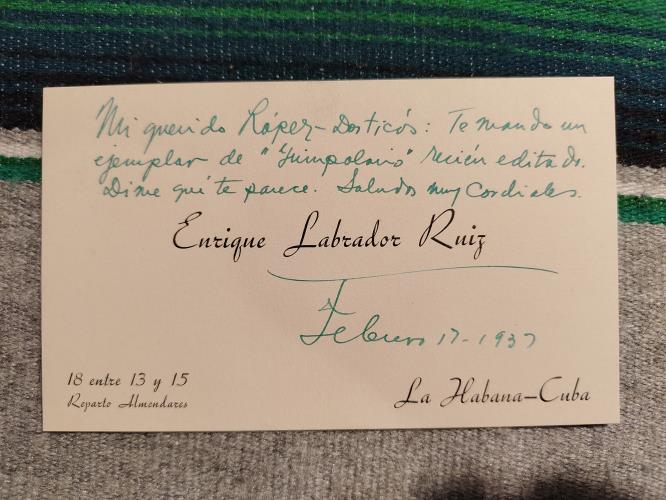 Mi querido López-Dorticós: Te mando un
ejemplar de "Grimpolario" recién editado.
Dime qué te parece. Saludos muy Cordiales.
Enrique Labrador Ruiz
Febrero 17-1937
18 entre 13 y 15
Reparto Almendares
La Habana-Cuba